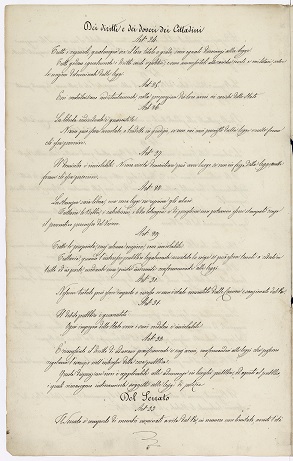 Dei diritti e dei doveri dei Cittadini
Art. 24.
Tutti i regnicoli, qualunque sia il loro titolo o grado, sono eguali dinanzi alla legge.
Tutti godono egualmente i diritti civili e politici, e sono ammessibili alle cariche civili e militari, salve
le eccezioni determinate dalle leggi.
Art. 25.
Essi contribuiscono indistintamente, nella proporzione dei loro averi, ai carichi dello Stato.
Art. 26.
La libertà individuale è guarentita.
Niuno può essere arrestato, o tradotto in giudizio, se non nei casi previsti dalla legge, e nelle forme
ch'essa prescrive.
Art. 27.
Il domicilio è inviolabile. Niuna visita domiciliare può aver luogo se non in forza della legge, e nelle
forme ch'essa prescrive.
Art. 28.
La Stampa sarà libera, ma una legge ne reprime gli abusi.
Tuttavia le bibbie, i catechismi, i libri liturgici e di preghiere non potranno essere stampati senza
il preventivo permesso del Vescovo.
Art. 29.
Tutte le proprietà, senza alcuna eccezione, sono inviolabili.
Tuttavia quando l'interesse pubblico legalmente accertato lo esiga, si può essere tenuti a cederle in
tutto o in parte, mediante una giusta indennità conformemente alle leggi.
Art. 30.
Nessun tributo può essere imposto o riscosso se non è stato consentito dalle Camere e sanzionato dal Re.
Art. 31.
Il debito pubblico è guarentito.
Ogni impegno dello Stato verso i suoi creditori è inviolabile.
Art. 32.
È riconosciuto il diritto di adunarsi pacificamente e senz'armi, uniformandosi alle leggi che possono
regolarne l'esercizio nell'interesse della cosa pubblica.
Questa disposizione non è applicabile alle adunanze in luoghi pubblici, od aperti al pubblico,
i quali rimangono intieramente soggetti alle leggi di polizia.
Del Senato
Art. 33.
Il Senato è composto di membri nominati a vita dal Re, in numero non limitato, aventi l'età